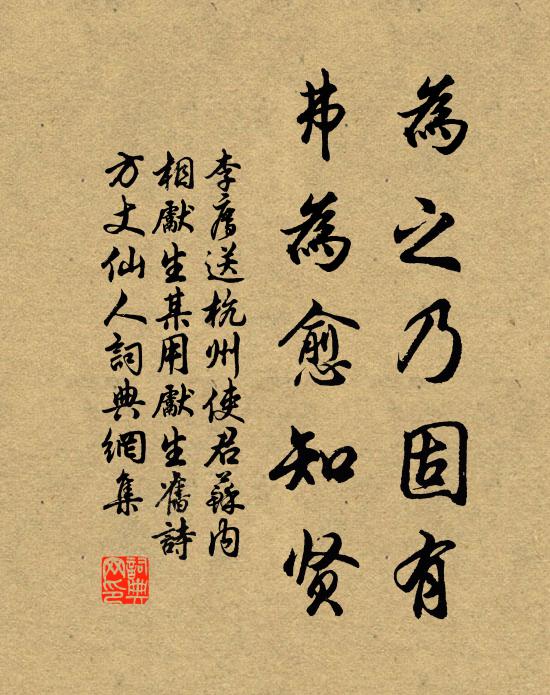 為之乃固有
弗為愈知贤
李廌送杭州使君蘇内
相獻生某用獻生舊詩
方丈仙人詞典網集
詞典网印